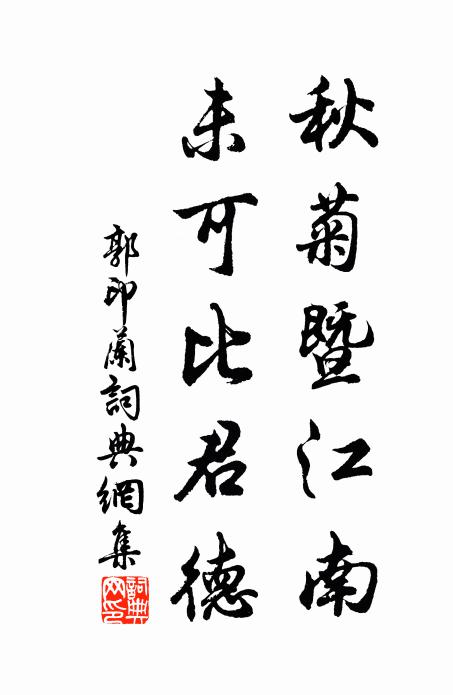 秋菊暨江南
未可比君德
郭印蘭詞典網集
詞典网印